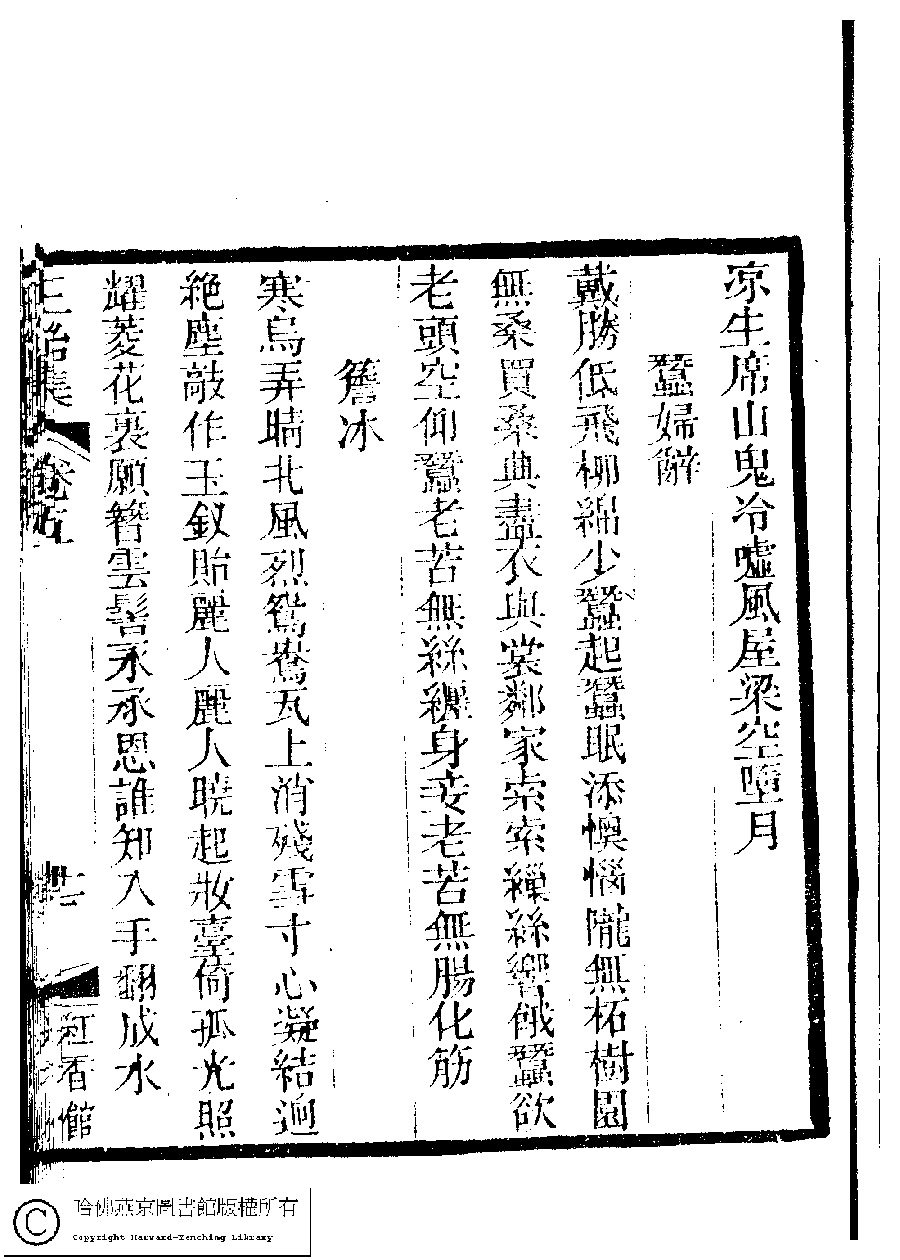 凉生席山鬼冷嘘風屋梁空墮月
蠶婦辭
戴勝低飛柳綿少蠶起蠶眠添懊惱隴無柘樹園
無桑買桑典盡衣與裳鄰家索索繅絲響餓蠶欲
老頭空仰蠶老苦無絲纏身妾老苦無腸化筋
簷冰
寒烏弄晴北風烈鴛鴦瓦上消殘雪寸心凝結迥
絶塵敲作玉釵貽麗人麗人曉起妝臺倚孤光照
耀菱花裏願簪雲髻永承恩誰知入手翻成水
三 集
卷五
紅香館
哈佛燕京圖書館版權所有
Copyright Harvard-Yenching Library